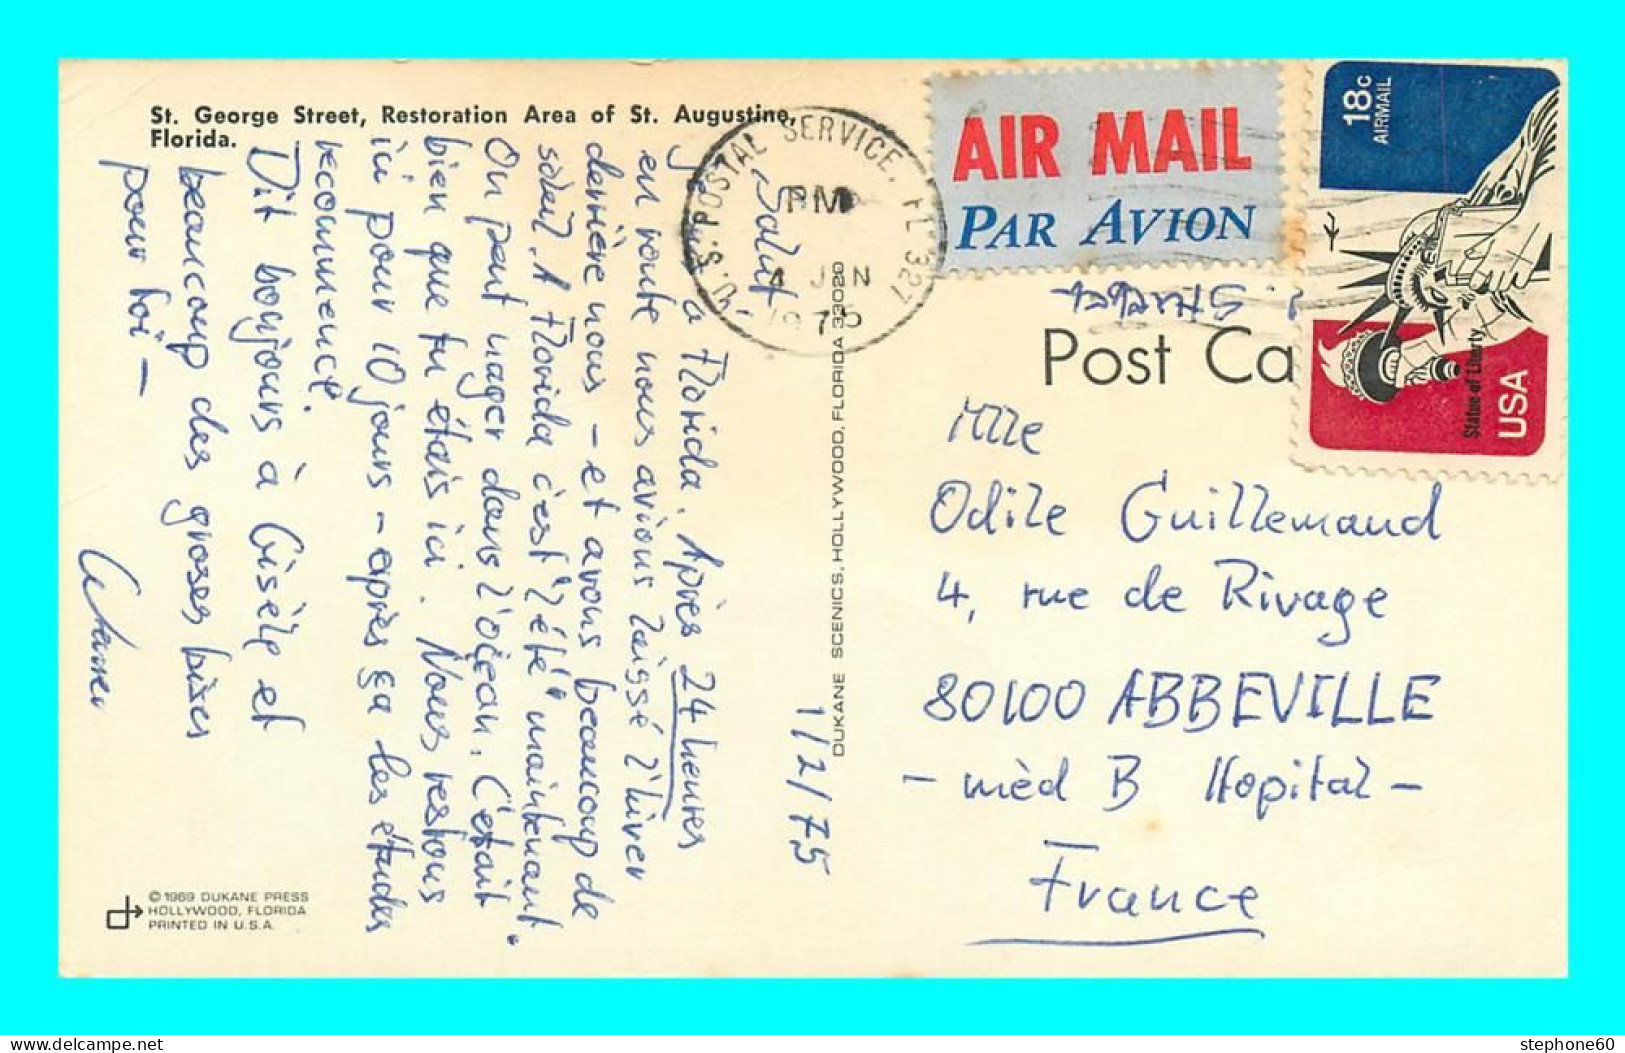 St. George Street, Restoration Area of St. Augustine,
Florida.
1/2/75
Salut,
Je suis à Florida. Après 24 heures
en route nous avions laissé l'hiver
derrière nous - et avons beaucoup de
soleil. A Florida c'est "l'été" maintenant.
On peut nager dans l'océan. C'était
bien que tu étais ici. Nous restons
ici pour 10 jours - après ça les études
recommence.
Dit bonjours à Gisèle et
beaucoup des grosses bises
pour toi -
© 1969 DUKANE PRESS
HOLLYWOOD, FLORIDA
PRINTED IN U.S.A.
DUKANE SCENICS, HOLLYWOOD, FLORIDA 33020
U.S. POSTAL SERVICE, FL 327
PM
4 JAN
1975
AIR MAIL
PAR AVION
18c
AIRMAIL
Statue of Liberty
USA
Post Ca
Mlle
Odile Guillemaud
4, rue de Rivage
80100 ABBEVILLE
- mèd B Hopital -
France
stephone60